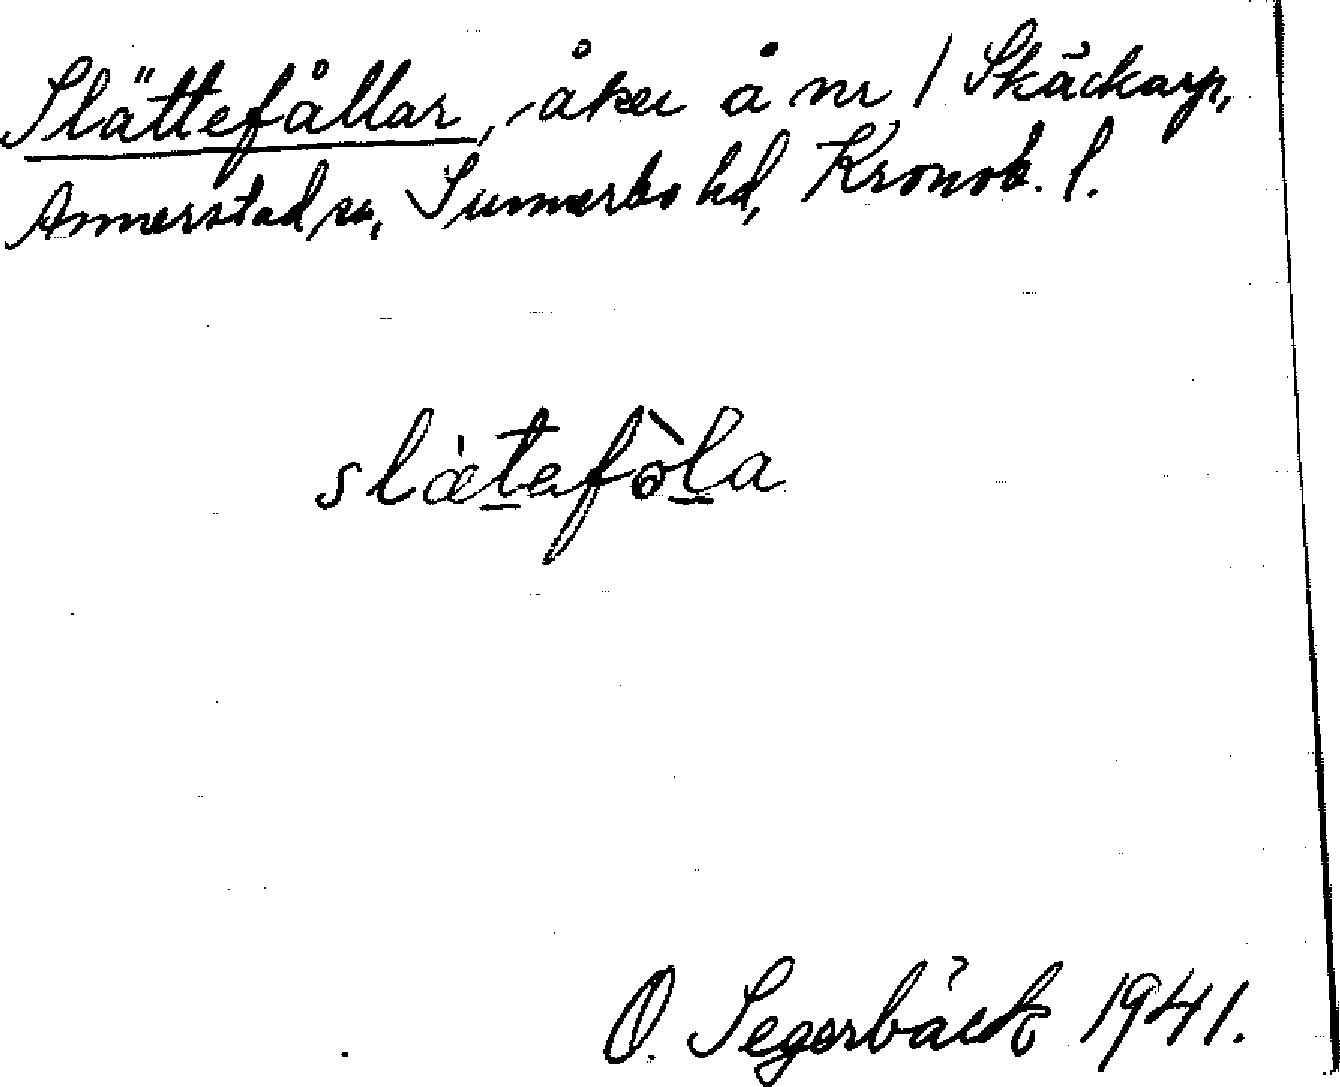 Slättefållar, åker å nr 1 Skäckarp,
Annerstad sn, Sunnerbo hd, Kronob. l.
slæ̀tafòla
O. Segerbäck 1941.